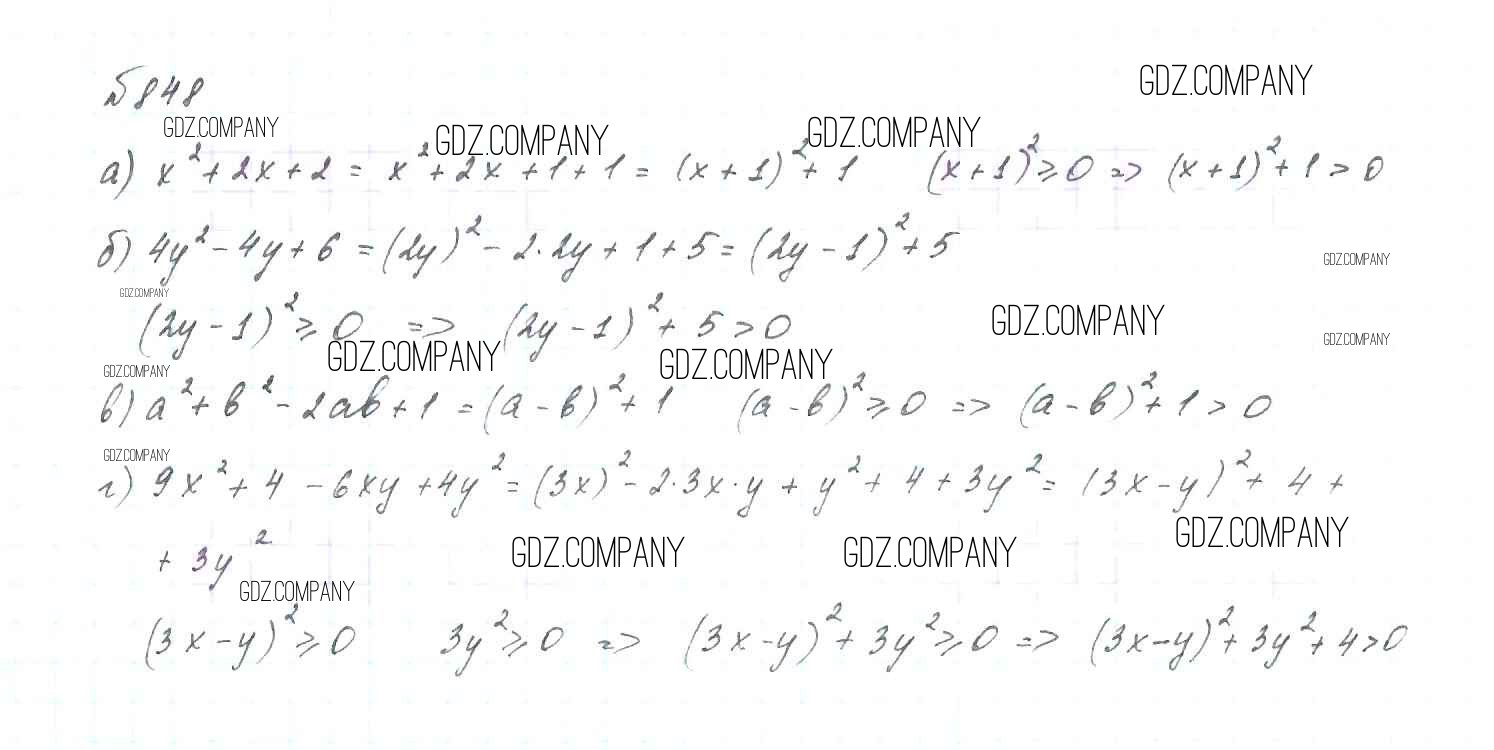 №848
GDZ.COMPANY
GDZ.COMPANY GDZ.COMPANY GDZ.COMPANY
а) x² + 2x + 2 = x² + 2x + 1 + 1 = (x + 1)² + 1 (x + 1)² ≥ 0 => (x + 1)² + 1 > 0
б) 4y² - 4y + 6 = (2y)² - 2·2y + 1 + 5 = (2y - 1)² + 5
GDZ.COMPANY
GDZ.COMPANY
(2y - 1)² ≥ 0 => (2y - 1)² + 5 > 0
GDZ.COMPANY
GDZ.COMPANY
GDZ.COMPANY GDZ.COMPANY
GDZ.COMPANY
в) a² + b² - 2ab + 1 = (a - b)² + 1 (a - b)² ≥ 0 => (a - b)² + 1 > 0
GDZ.COMPANY
г) 9x² + 4 - 6xy + 4y² = (3x)² - 2·3x·y + y² + 4 + 3y² = (3x - y)² + 4 +
GDZ.COMPANY
GDZ.COMPANY GDZ.COMPANY
+ 3y²
GDZ.COMPANY
(3x - y)² ≥ 0 3y² ≥ 0 => (3x - y)² + 3y² ≥ 0 => (3x - y)² + 3y² + 4 > 0